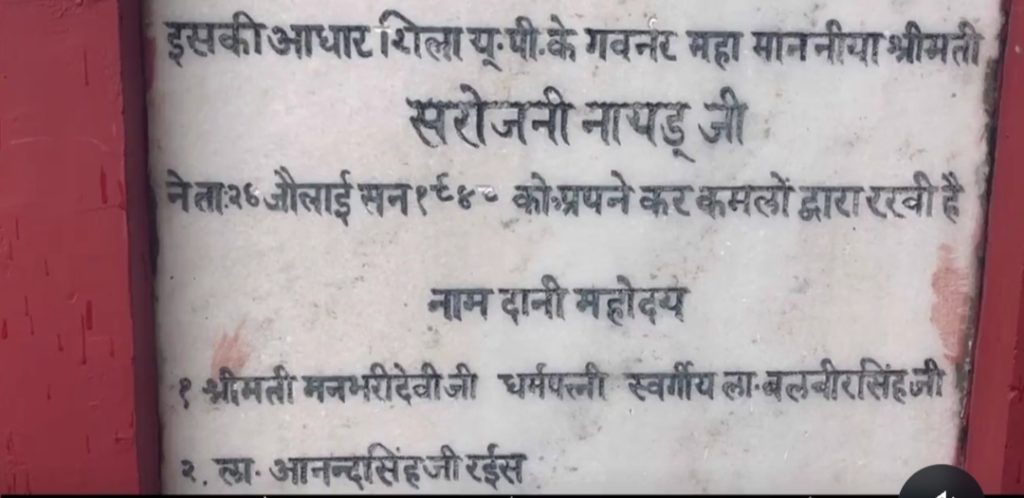 इसकी आधार शिला यू·पी·के गवर्नर महा माननीया श्रीमती
सरोजनी नायडू जी
ने ता: जौलाई सन को अपने कर कमलों द्वारा रखी है
नाम दानी महोदय
१ श्रीमती मनभरीदेवी जी धर्मपत्नी स्वर्गीय ला·बलबीरसिंह जी
२. ला· आनन्दसिंह जी रईस